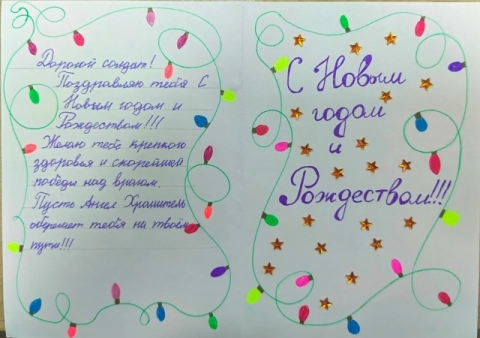 Дорогой солдат!
Поздравляю тебя с
Новым годом и
Рождеством!!!
Желаю тебе крепкого
здоровья и скорейшей
победы над врагом.
Пусть Ангел Хранитель
оберегает тебя на твоём
пути!!!
С Новым
годом
и
Рождеством!!!